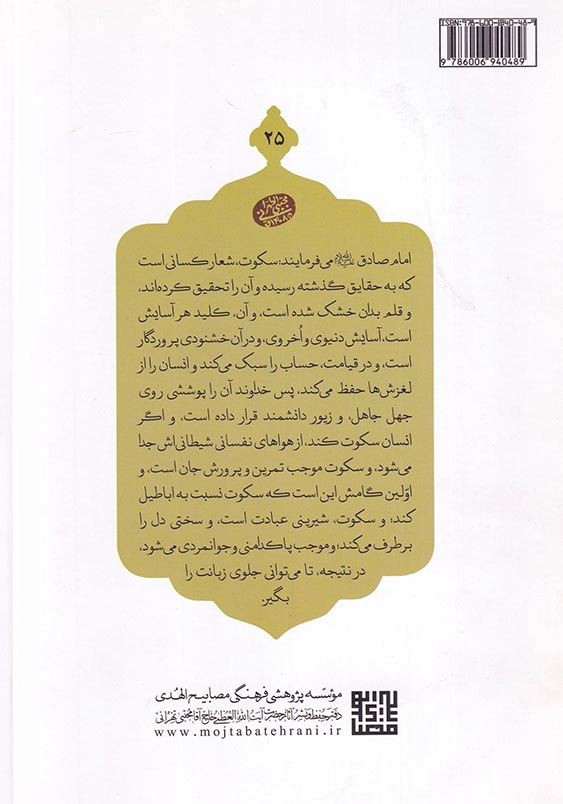 ISBN: 978-600-6940-48-9
9 786006 940489
۲۵
امام صادق علیه‌السلام می‌فرمایند: سکوت، شعار کسانی است
که به حقایق گذشته رسیده و آن را تحقیق کرده‌اند،
و قلم بدان خشک شده است، و آن، کلید هر آسایش
است، آسایش دنیوی و اُخروی، و در آن خشنودی پروردگار
است، و در قیامت، حساب را سبک می‌کند و انسان را از
لغزش‌ها حفظ می‌کند، پس خداوند آن را پوششی روی
جهل جاهل، و زیور دانشمند قرار داده است، و اگر
انسان سکوت کند، از هواهای نفسانی شیطانی‌اش جدا
می‌شود، و سکوت موجب تمرین و پرورش جان است، و
اوّلین گامش این است که سکوت نسبت به اباطیل
کند؛ و سکوت، شیرینی عبادت است، و سختی دل را
برطرف می‌کند؛ و موجب پاکدامنی و جوانمردی می‌شود،
در نتیجه، تا می‌توانی جلوی زبانت را
بگیر.
مؤسّسه پژوهشی فرهنگی مصابیح الهدی
دفتر حفظ و نشر آثار حضرت آیت الله العظمی حاج آقا مجتبی تهرانی
www.mojtabatehrani.ir